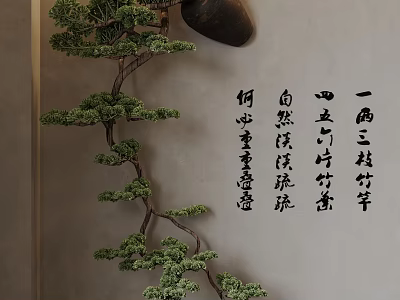 一两三枝竹竿
四五六片竹葉
自然淡淡疏疏
何必重重疊疊